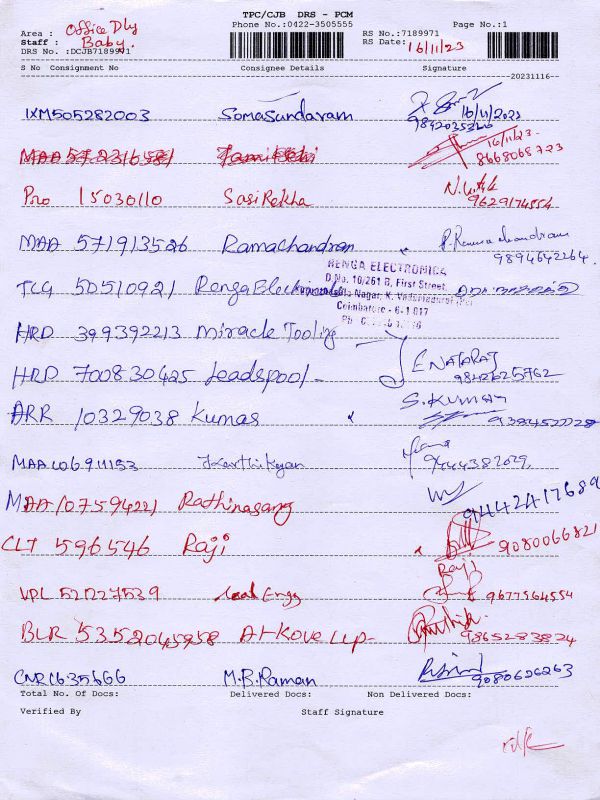 TPC/CJB DRS - PCM
Area : Office Dly Phone No.:0422-3505555 RS No.:7189971 Page No.:1
Staff : Baby. RS Date: 16/11/23
DRS No. :DCJB7189971
S No Consignment No Consignee Details Signature
20231116
IXM505282003 Somasundaram 16/11/2023
9842035226
MAA 16/11/23
8668068723
Pro 15030110 SasiRekha 9629174554
MAA 571913526 Ramachandran P. Ramachandran
9894642264
RENGA ELECTRONICA
D.No. 10/261 B, First Street,
Nagar, K. Vadamadurai
Coimbatore - 641 017
TCG 50510921 Renga Electronica
HRD 399392213 Miracle Tooling
HRD 700830425 Leadspool - NATARAJ
9842625762
ARR 10329038 Kumar S. KUMAR
MAA 606911153 Karthikeyan 9444382029
MAA 107594221 Rathinasang 9442417689
CLT 596546 Raji 9080066821
Raji
VPL 521227539 Engg 9677564554
BLR 5352045958 Arkove LLP- 9865283824
CNR 1635666 M.R.Raman 9080626263
Total No. Of Docs: Delivered Docs: Non Delivered Docs:
Verified By Staff Signature